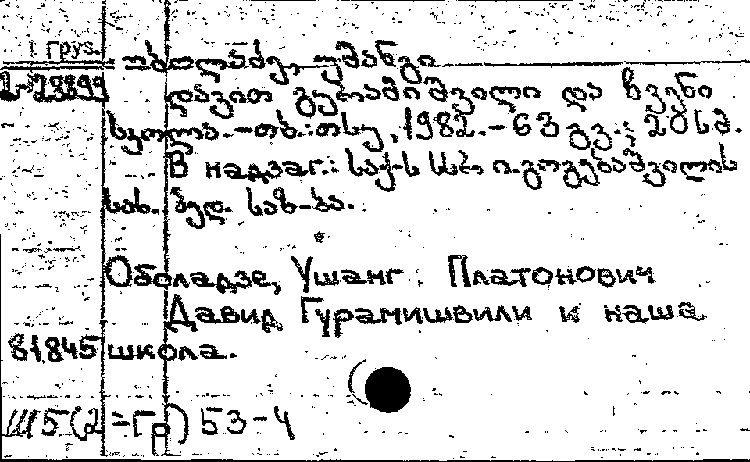 Груз.
ობოლაძე, უშანგი
2-28899 დავით გურამიშვილი და ჩვენი
სკოლა. - თბ.: თსუ, 1982. - 63 გვ.; 20 სმ.
В надзаг.: საქ-ს სსრ ი. გოგებაშვილის
სახ. პედ. საზ-ბა.
Оболадзе, Ушанг Платонович
Давид Гурамишвили и наша
81845 школа.
Ш5(2=Гр)53-4